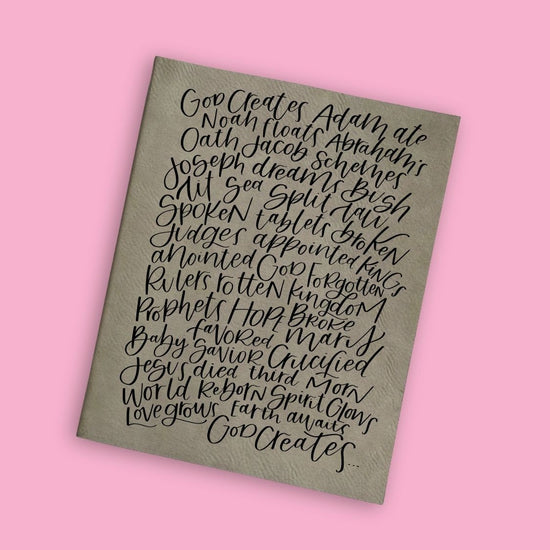 GOD CREATES ADAM ate
NOAH floats ABRAHAM'S
OATH JACOB Schemes
Joseph dreams BUSH
lit Sea Split law
SPOKEN tablets broken
Judges appointed KINGS
anointed GOD FORGOTTEN
RULERS rotten KINGDOM
Prophets HOPE BROKE
favored MARY
Baby Savior Crucified
Jesus died third MORN
World REBORN Spirit Glows
Love grows EARTH awaits
GOD CREATES...